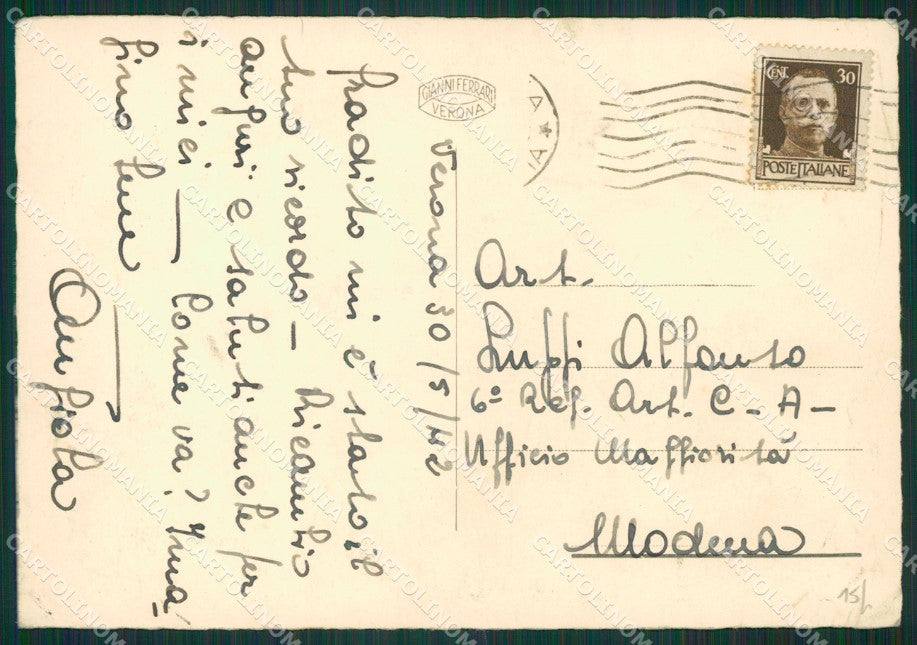 Verona 30/5/42
Gradito mi è stato il
tuo ricordo — Ricambio
auguri e saluti anche per
i miei — Come va? Imma-
gino bene
GIANNI FERRARI
VERONA
CENT. 30
POSTE ITALIANE
Art.
Luppi Alfonso
6° Reg. Art. C-A-
Ufficio Maggiorità
Modena
15/
CARTOLINOMANIA